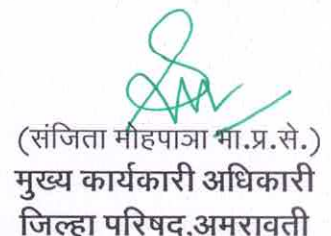 (संजिता मोहपात्रा भा.प्र.से.)
मुख्य कार्यकारी अधिकारी
जिल्हा परिषद,अमरावती